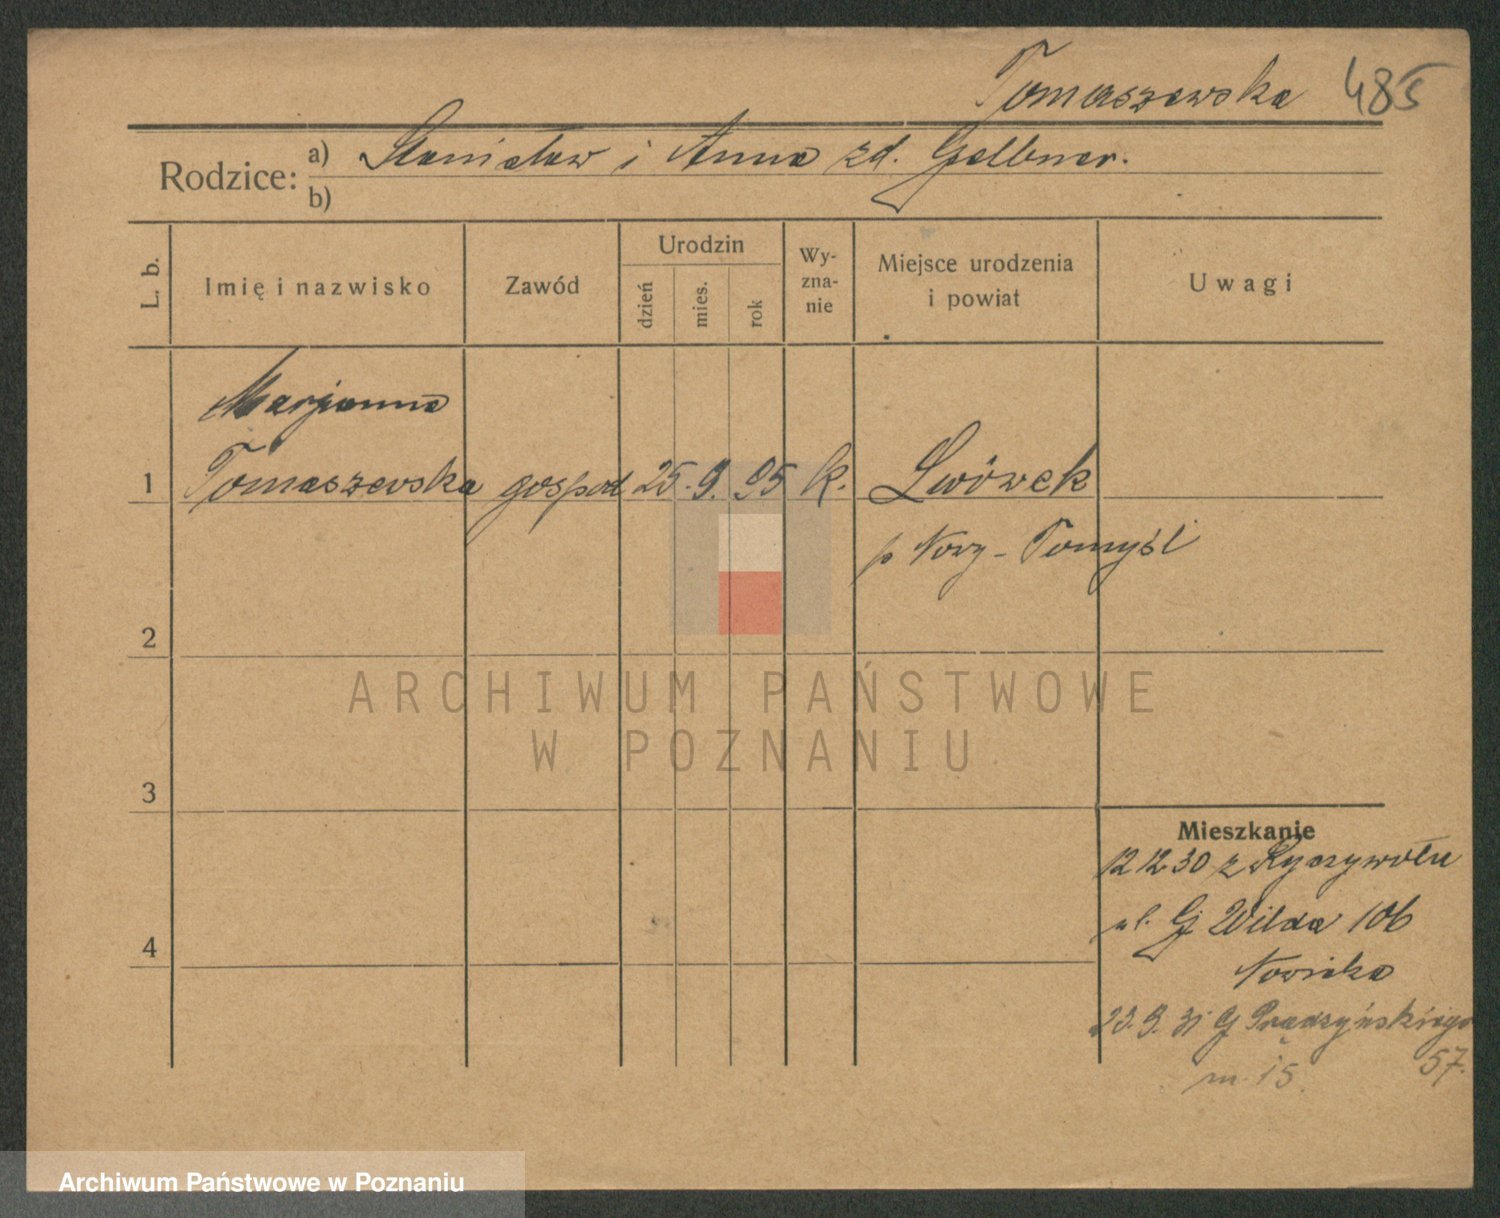 Tomaszewska 485
Rodzice: a) Stanisław i Anna zd. Gelbner.
b)
L. b. Imię i nazwisko Zawód Urodzin dzień mies. rok Wy-zna-nie Miejsce urodzenia i powiat Uwagi
Marjanna
1 Tomaszewska gospod 25. 9. 95 k. Lwówek
p Nowy-Tomyśl
2
ARCHIWUM PAŃSTWOWE
W POZNANIU
3
Mieszkanie
12 12 30 z Ryczywołu
ul. G Wilda 106
4
Nowicka
23. 9. 31 G Prądzyńskiego
57.
m 15.
Archiwum Państwowe w Poznaniu